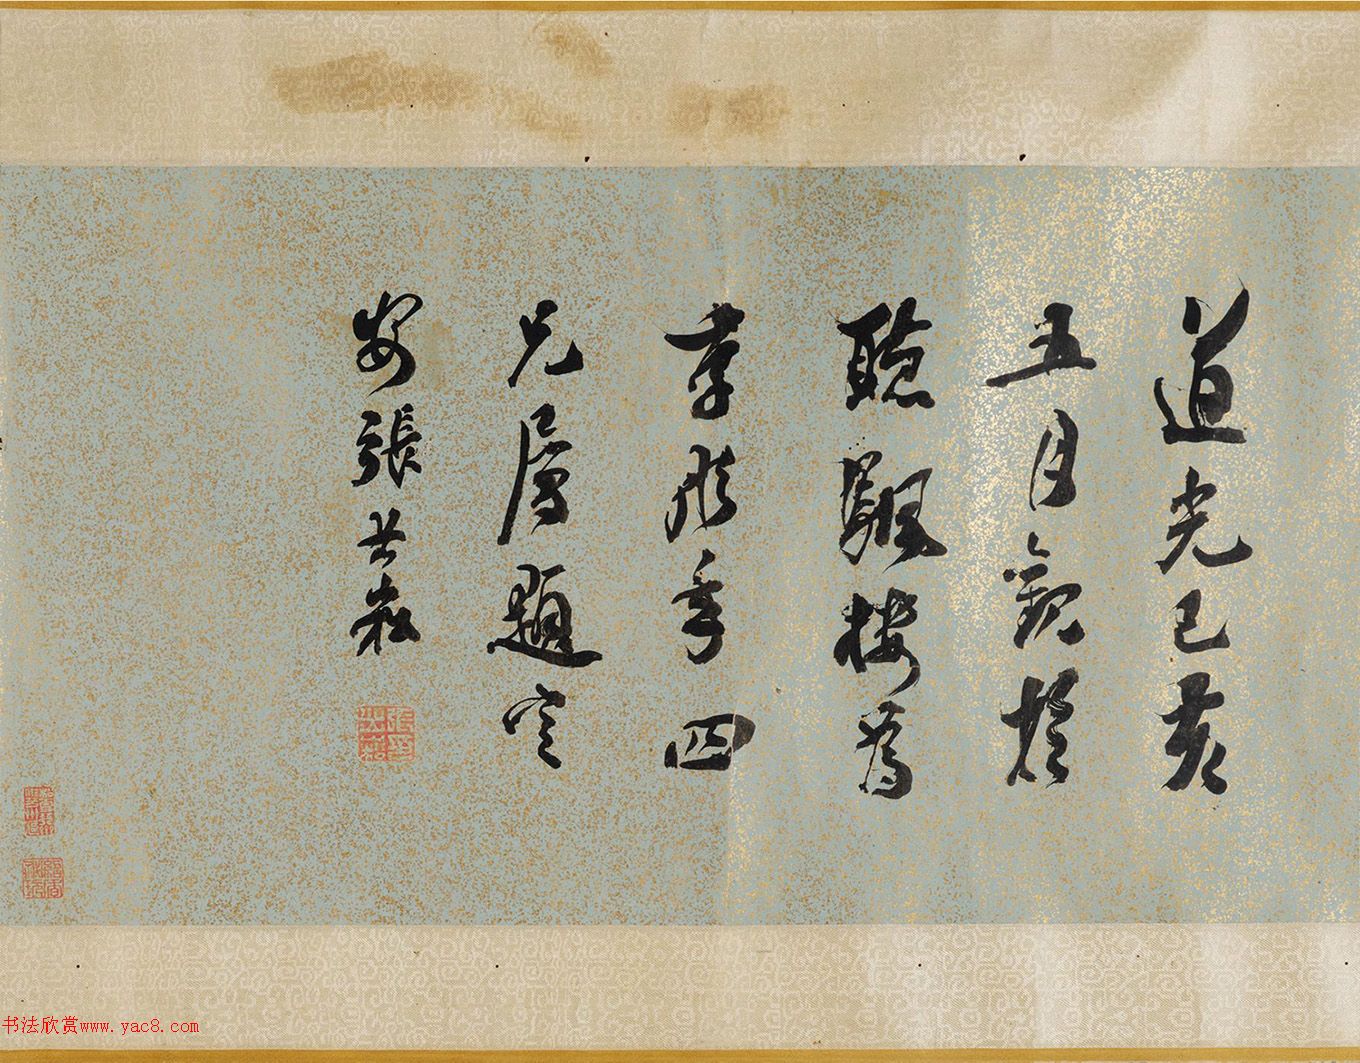 道光己亥
五月觀於
聽颿樓為
季彤年四
兄屬題定
安張岳崧
书法欣赏www.yac8.com